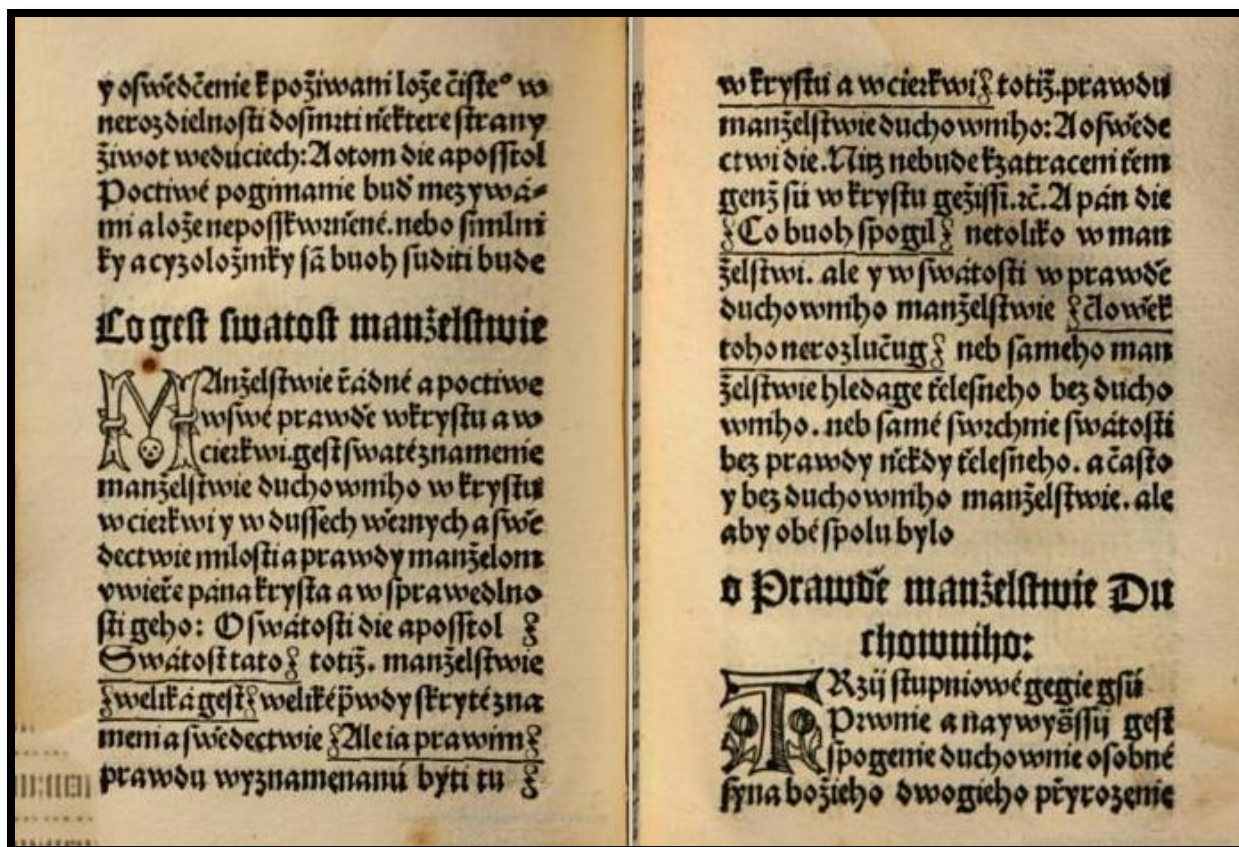 y oſwědčenie k požiwani lože čiſteº w
nerozdielnoſti doſmrti některe ſtrany
žiwot wedúciech: A otom die apoſſtol
Poctiwé pogimanie buď mezy wá⸗
mi a lože nepoſſkwrněné. nebo ſmilni
ky a cyzoložniky ſā buoh ſuditi bude
Co geſt ſwatoſt manželſtwie
MAnželſtwie řádné a poctiwe
wſwé prawdě wkryſtu a w
cierkwi. geſt ſwaté znamenie
manželſtwie duchowniho w kryſtu
w cierkwi y w duſſech wěrnych a ſwě
dectwie miloſti a prawdy manželom
v wieře pána kryſta a w ſprawedlno
ſti geho: O ſwátoſti die apoſſtol
Swátoſt tato totiž. manželſtwie
weliká geſt weliké p̄wdy ſkryté zna
meni a ſwědectwie Ale ia prawim
prawdu wyznamenanú býti tu
w kryſtu a w cierkwi totiž. prawdu
manželſtwie duchowniho: A oſwěde
ctwi die. Nitz nebude kzatraceni těm
genž ſú w kryſtu gežiſſi. ꝛč. A pán die
Co buoh ſpogil netoliko w man
želſtwi. ale y w ſwátoſti w prawdě
duchowniho manželſtwie člowěk
toho nerozlučug neb ſameho man
želſtwie hledage těleſneho bez ducho
wniho. neb ſamé ſwrchnie ſwátoſti
bez prawdy někdy těleſneho. a čaſto
y bez duchowniho manželſtwie. ale
aby obé ſpolu bylo
o Prawdě manželſtwie Du
chowniho:
TRzij ſtupniowé gegie gſú
Prwnie a naywyšſſij geſt
ſpogenie duchownie oſobné
ſyna božieho dwogieho přyrozenie